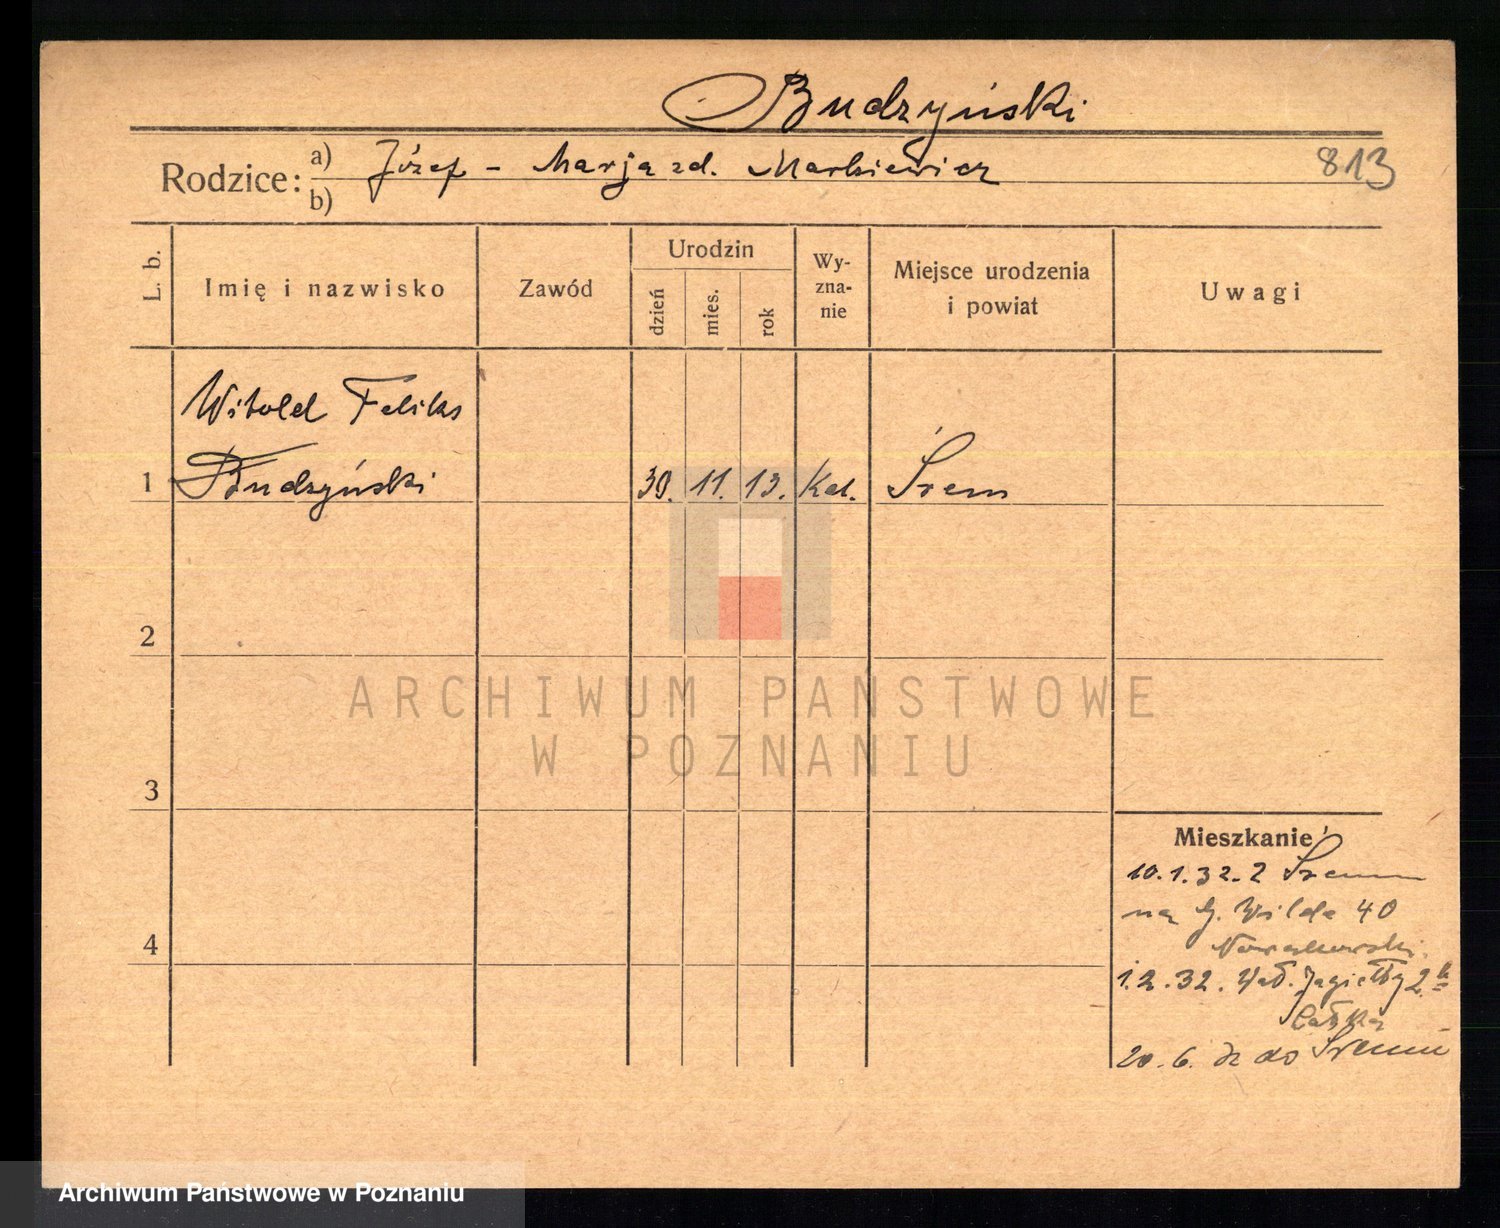 Budzyński
Rodzice: a) Józef - Marja zd. Markiewicz
813
b)
L. b.
Imię i nazwisko
Zawód
Urodzin
dzień
mies.
rok
Wy-
zna-
nie
Miejsce urodzenia
i powiat
Uwagi
Witold Feliks
1 Budzyński 30. 11. 13. Kat. Śrem
2
3
4
ARCHIWUM PAŃSTWOWE
W POZNANIU
Mieszkanie
10.1.32. z Śremu
na G. Wilda 40
Nowakowski
1.2.32. Wład. Jagiełły 2
20.6. do Śremu
Archiwum Państwowe w Poznaniu